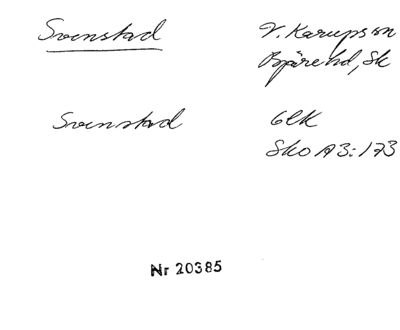 Svenstad V. Karups sn
Bjäre hd, Sk
Svenstad GEK
Sko A3:173
Nr 20385